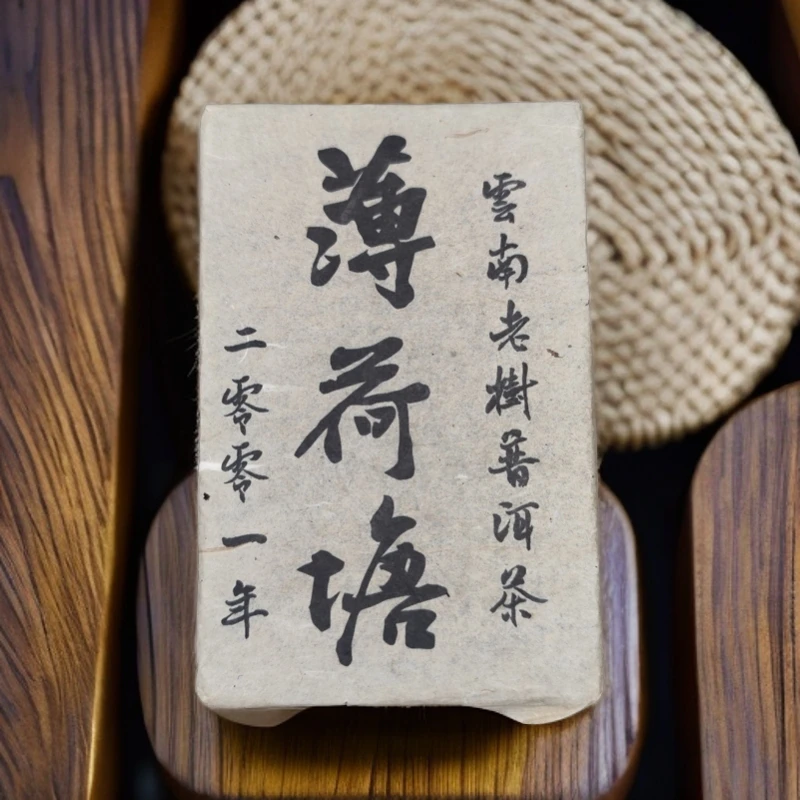 雲南老樹普洱茶
薄荷塘
二零零一年